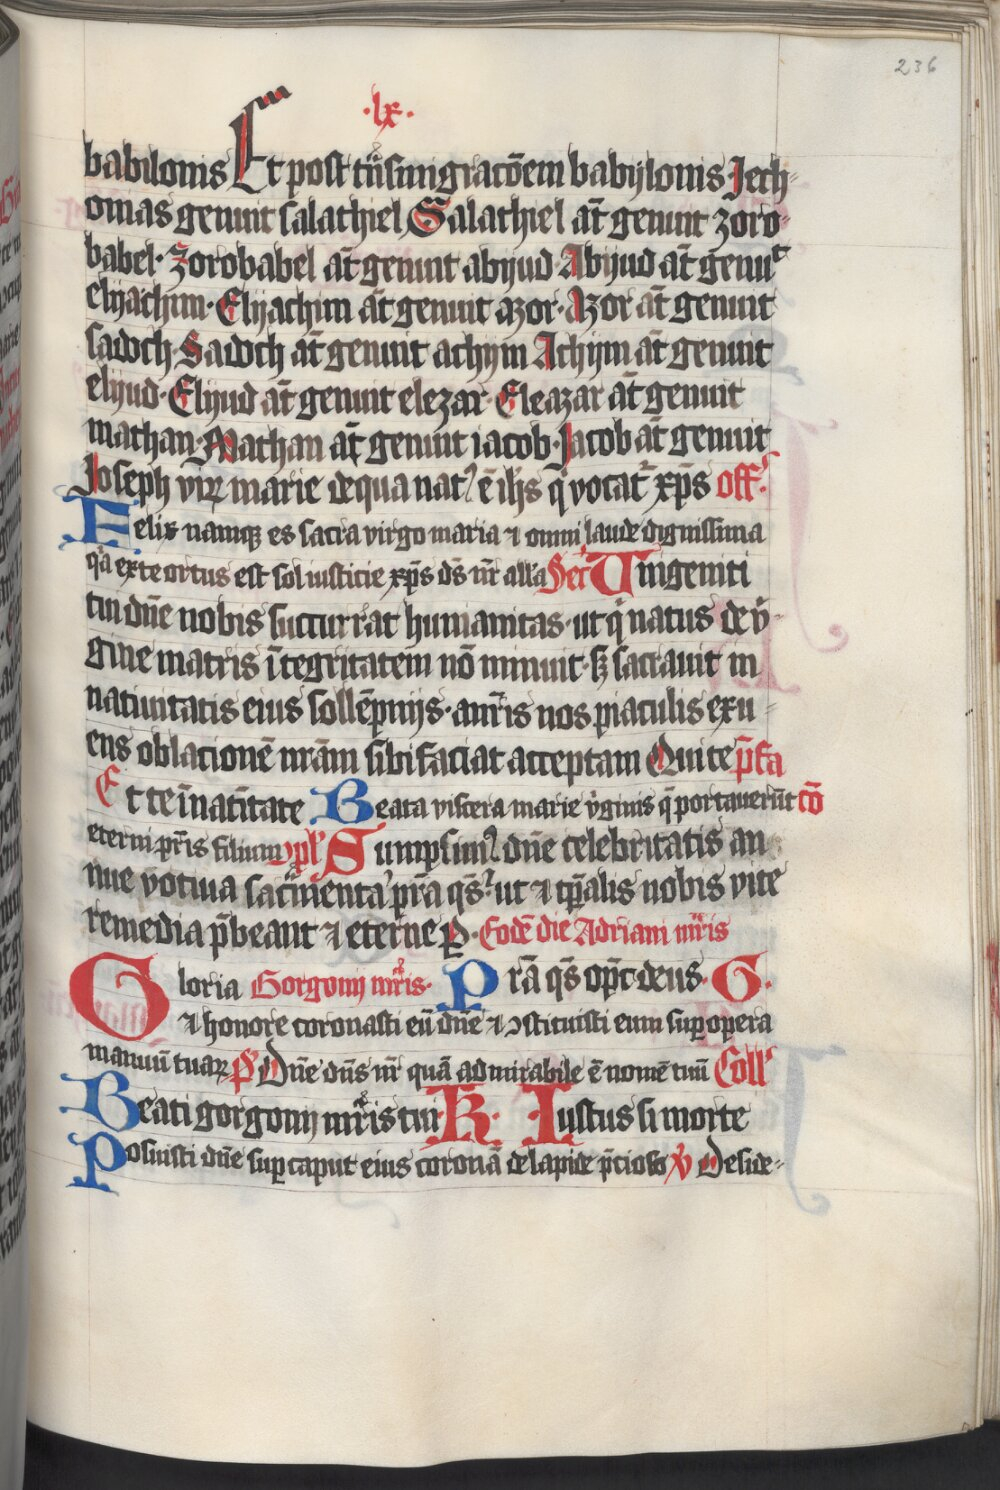 236
·lx·
babilonis Et post tn̄smigracōem babylonis Jech-
onias genuit salathiel Salathiel at̄ genuit zoro-
babel· Zorobabel at̄ genuit abyud Abyud at̄ genuͭ
elyachim· Elyachim at̄ genuit azor· Azor at̄ genuit
sadoch· Sadoch at̄ genuit achym Achym at̄ genuit
elyud· Elyud at̄ genuit elezar· Eleazar at̄ genuit
mathan· Mathan at̄ genuit iacob· Jacob at̄ genuit
Joseph virꝝ marie de qua natꝰ ē ih̄s q̇ vocat᷑ xp̄s off᷑·
Felix namqꝫ es sacra virgo maria ⁊ omni laude dignissima
q̇a ex te ortus est sol iusticie xp̄s ds̄ nr̄ all̓a Secr᷑ Unigeniti
tui dn̄e nobis succurrat humanitas· ut q̇ natus de v̇-
gine matris ītegritatem nō minuit· sꝫ sacrauit in
natiuitatis eius sollēpniis· a nr̄is nos piaculis exu-
ens oblacionē nr̄am sibi faciat acceptam Qui te p̄fa
Et te ī natītate Beata viscera marie v̇ginis q̄ portauerūt cō
eterni pr̄is filium ꝯpl᷑ Sumpsimꝰ dn̄e celebritatis an-
nue votiua sacͣmenta· pr̄a qs̄· ut ⁊ tp̄alis nobis vite
remedia p̄beant ⁊ eterne P· Eodē die Adriani mr̄is
Gloria Gorgonij mr̄is· Pr̄a qs̄ op̄c deus· G·
⁊ honore coronasti eū dn̄e ⁊ ꝯstituisti eum sup̄ opera
manuū tuaꝝ P̄s Dn̄e dn̄s nr̄ quā admirabile ē nomē tuū Coll᷑
Beati gorgonij mr̄is tui K· Iustus si morte
Posuisti dn̄e sup̄ caput eius coronā de lapide p̄cioso V̄ Deside-